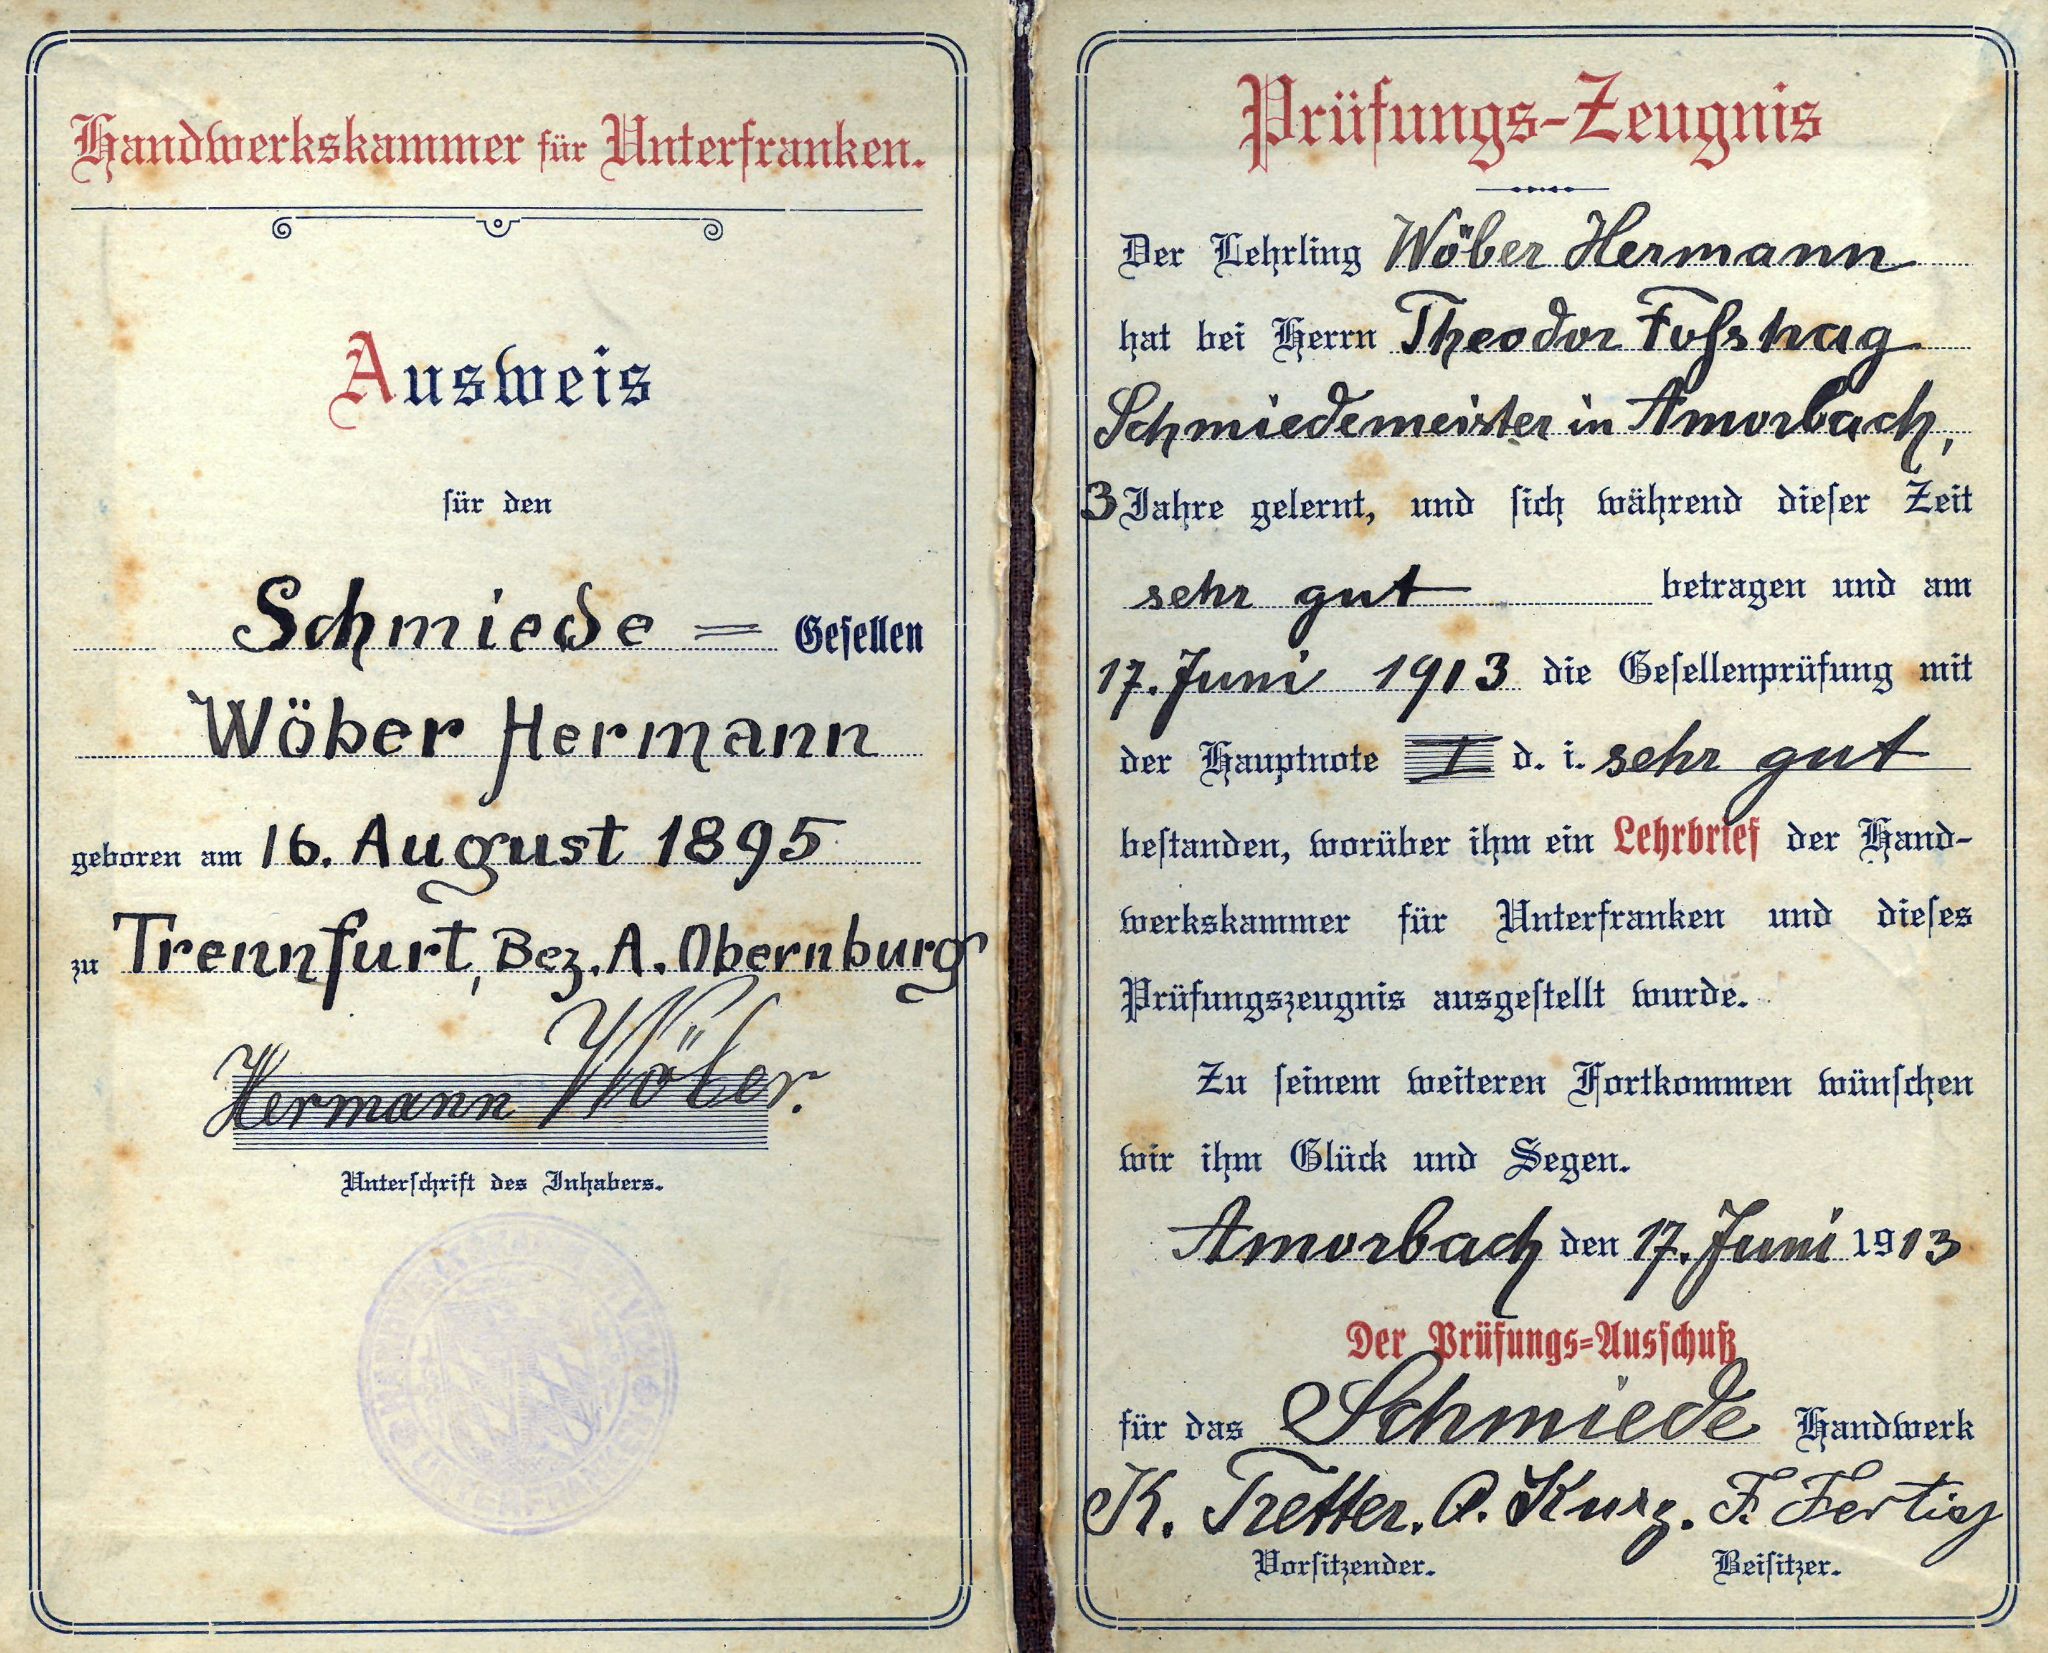 Handwerkskammer für Unterfranken.
Ausweis
für den
Schmiede = Gesellen
Wöber Hermann
geboren am 16. August 1895
zu Trennfurt, Bez. A. Obernburg
Hermann Wöber.
Unterschrift des Inhabers.
Prüfungs-Zeugnis
Der Lehrling Wöber Hermann
hat bei Herrn Theodor
Schmiedemeister in Amorbach,
3 Jahre gelernt, und sich während dieser Zeit
sehr gut betragen und am
17. Juni 1913 die Gesellenprüfung mit
der Hauptnote I d. i. sehr gut
bestanden, worüber ihm ein Lehrbrief der Hand-
werkskammer für Unterfranken und dieses
Prüfungszeugnis ausgestellt wurde.
Zu seinem weiteren Fortkommen wünschen
wir ihm Glück und Segen.
Amorbach den 17. Juni 1913
Der Prüfungs=Ausschuß
für das Schmiede Handwerk
K. Tretter. O. Kurz. F. Fertig
Vorsitzender. Beisitzer.